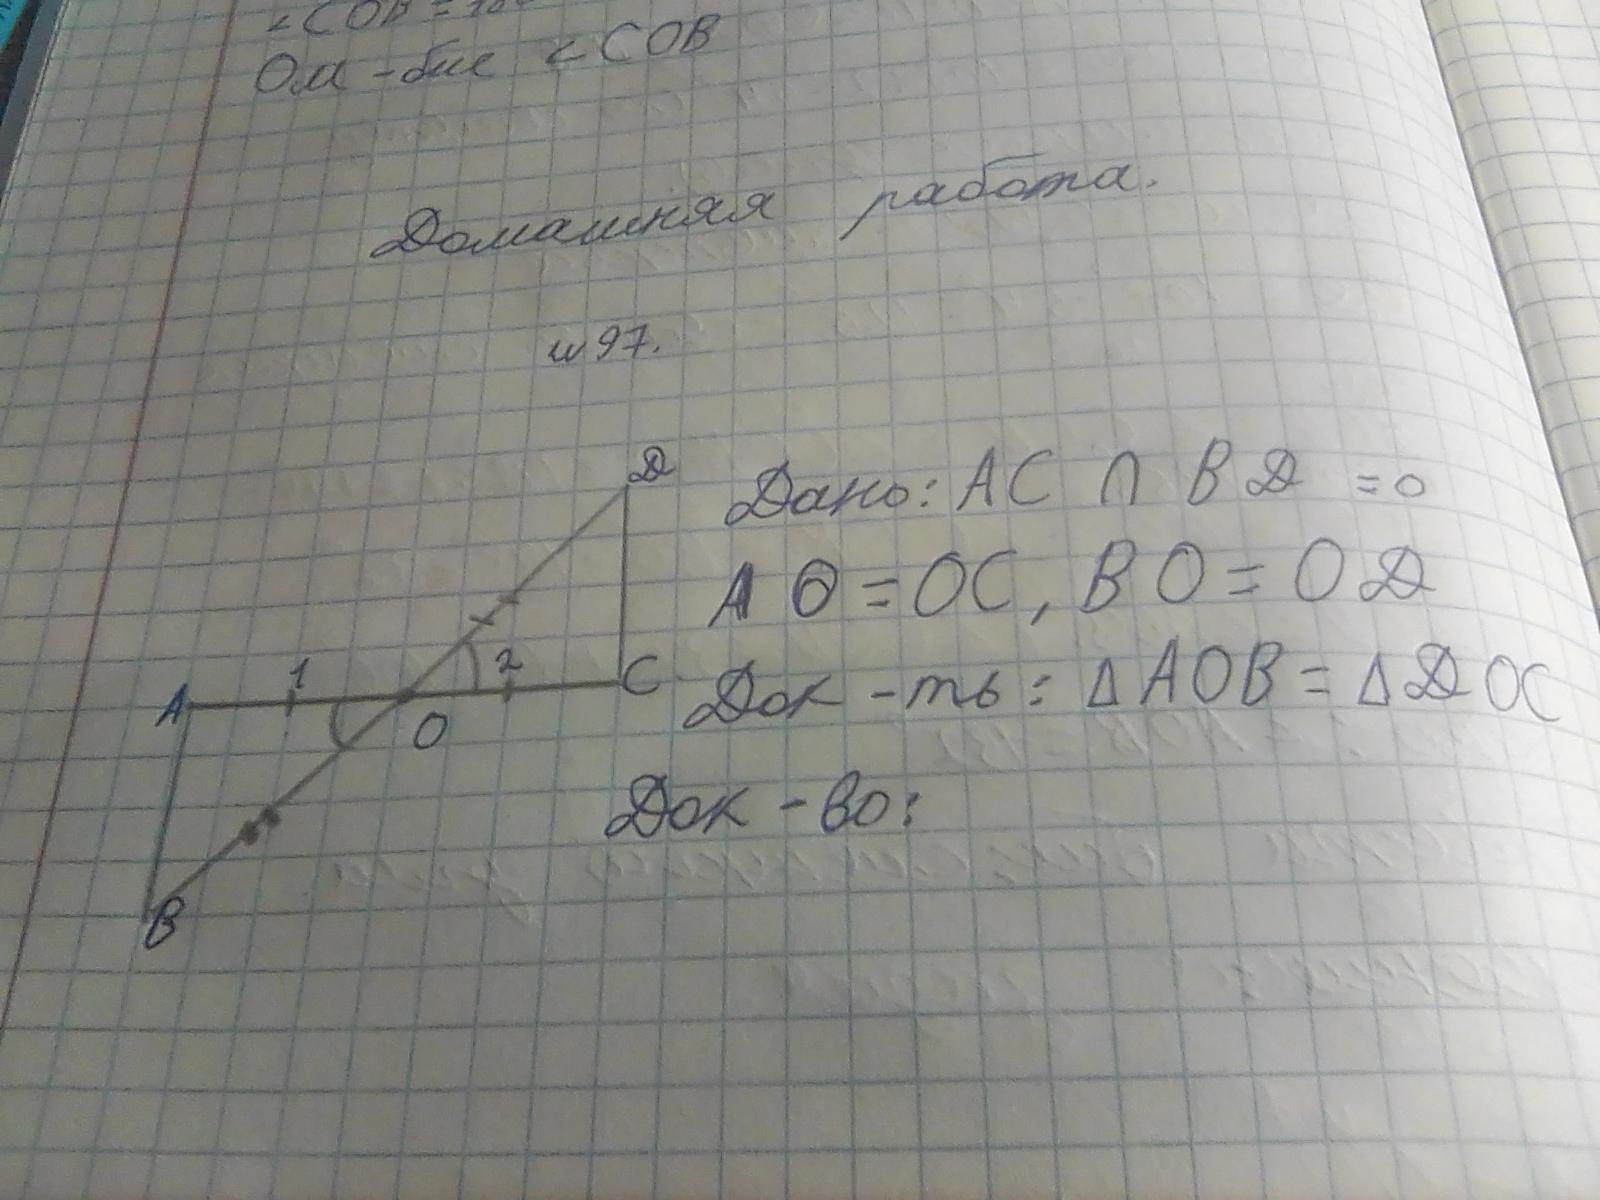 ∠COB =
OM - бис ∠ COB
Домашняя работа.
н 97.
Дано: AC ∩ BD = O
AO = OC, BO = OD
Док - ть: Δ AOB = Δ DOC
Док - во:
D
1
2
A
C
O
B